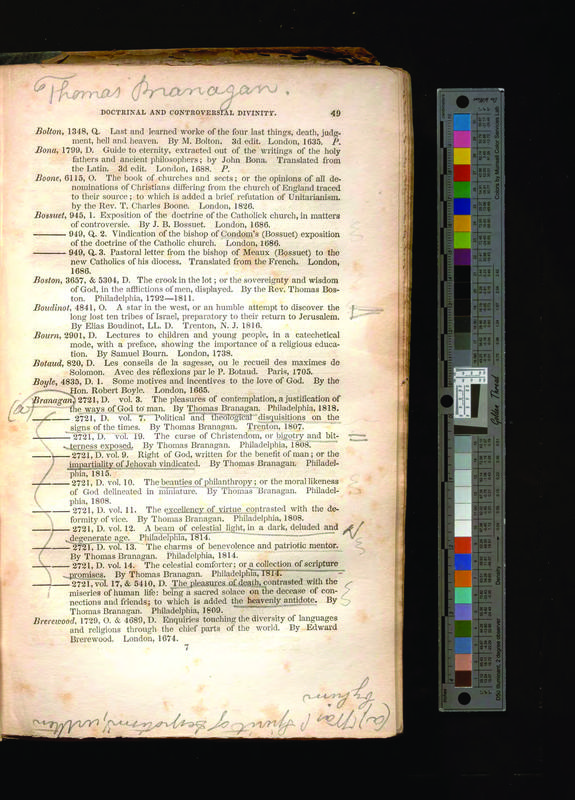 Thomas Branagan.
DOCTRINAL AND CONTROVERSIAL DIVINITY. 49
Bolton, 1348, Q. Last and learned worke of the four last things, death, judg-
ment, hell and heaven. By M. Bolton. 3d edit. London, 1635. P.
Bona, 1799, D. Guide to eternity, extracted out of the writings of the holy
fathers and ancient philosophers; by John Bona. Translated from
the Latin. 3d edit. London, 1688. P.
Boone, 6115, O. The book of churches and sects; or the opinions of all de-
nominations of Christians differing from the church of England traced
to their source; to which is added a brief refutation of Unitarianism.
by the Rev. T. Charles Boone. London, 1826.
Bossuet, 945, 1. Exposition of the doctrine of the Catholick church, in matters
of controversie. By J. B. Bossuet. London, 1686.
—— 949, Q. 2. Vindication of the bishop of Condom's (Bossuet) exposition
of the doctrine of the Catholic church. London, 1686.
—— 949, Q. 3. Pastoral letter from the bishop of Meaux (Bossuet) to the
new Catholics of his diocess. Translated from the French. London,
1686.
Boston, 3657, & 5304, D. The crook in the lot; or the sovereignty and wisdom
of God, in the afflictions of men, displayed. By the Rev. Thomas Bos-
ton. Philadelphia, 1792—1811.
Boudinot, 4841, O. A star in the west, or an humble attempt to discover the
long lost ten tribes of Israel, preparatory to their return to Jerusalem.
By Elias Boudinot, LL. D. Trenton, N. J. 1816.
Bourn, 2901, D. Lectures to children and young people, in a catechetical
mode, with a preface, showing the importance of a religious educa-
tion. By Samuel Bourn. London, 1738.
Botaud, 820, D. Les conseils de la sagesse, ou le recueil des maximes de
Solomon. Avec des réflexions par le P. Botaud. Paris, 1705.
Boyle, 4835, D. 1. Some motives and incentives to the love of God. By the
Hon. Robert Boyle. London, 1665.
(a) Branagan, 2721, D. vol. 3. The pleasures of contemplation, a justification of
the ways of God to man. By Thomas Branagan. Philadelphia, 1818.
—— 2721, D. vol. 7. Political and theological disquisitions on the
signs of the times. By Thomas Branagan. Trenton, 1807.
—— 2721, D. vol. 19. The curse of Christendom, or bigotry and bit-
terness exposed. By Thomas Branagan. Philadelphia, 1808.
—— 2721, D. vol. 9. Right of God, written for the benefit of man; or the
impartiality of Jehovah vindicated. By Thomas Branagan. Philadel-
phia, 1815.
—— 2721, D. vol. 10. The beauties of philanthropy; or the moral likeness
of God delineated in miniature. By Thomas Branagan. Philadel-
phia, 1808.
—— 2721, D. vol. 11. The excellency of virtue contrasted with the de-
formity of vice. By Thomas Branagan. Philadelphia, 1808.
—— 2721, D. vol. 12. A beam of celestial light, in a dark, deluded and
degenerate age. Philadelphia, 1814.
—— 2721, D. vol. 13. The charms of benevolence and patriotic mentor.
By Thomas Branagan. Philadelphia, 1814.
—— 2721, D. vol. 14. The celestial comforter; or a collection of scripture
promises. By Thomas Branagan. Philadelphia, 1814.
—— 2721, vol. 17, & 5410, D. The pleasures of death, contrasted with the
miseries of human life: being a sacred solace on the decease of con-
nections and friends; to which is added the heavenly antidote. By
Thomas Branagan. Philadelphia, 1809.
Brerewood, 1729, O. & 4689, D. Enquiries touching the diversity of languages
and religions through the chief parts of the world. By Edward
Brerewood. London, 1674.
7
Golden Thread
Density